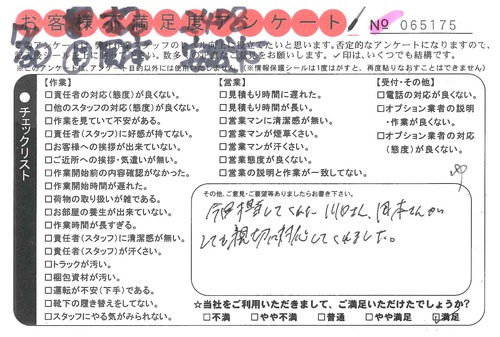 お客様不満足度アンケート
No 065175
このアンケートは、弊社作業スタッフのサービス向上に役立てたいと思います。否定的なアンケートになりますので、
✓印は、いくつでも結構です。
※このアンケートは、アンケート目的以外には使用いたしません。(※情報保護シールは1度はがすと、再度貼りなおすことはできません)
●チェックリスト
【作業】
□責任者の対応(態度)が良くない。
□他のスタッフの対応(態度)が良くない。
□作業を見ていて不安がある。
□責任者(スタッフ)に好感が持てない。
□お客様への挨拶が出来ていない。
□ご近所への挨拶・気遣いが無い。
□作業開始前の内容確認がなかった。
□作業開始時間が遅れた。
□荷物の取り扱いが雑である。
□お部屋の養生が出来ていない。
□作業時間が長すぎる。
□責任者(スタッフ)に清潔感が無い。
□責任者(スタッフ)が汗くさい。
□トラックが汚い。
□梱包資材が汚い。
□運転が不安(下手)である。
□靴下の履き替えをしてない。
□スタッフにやる気がみられない。
【営業】
□見積もり時間に遅れた。
□見積もり時間が長い。
□営業マンに清潔感が無い。
□営業マンが煙草くさい。
□営業マンが汗くさい。
□営業態度が良くない。
□営業の説明と作業が一致してない。
【受付・その他】
□電話の対応が良くない。
□オプション業者の説明
・作業が良くない。
□オプション業者の対応
(態度)が良くない。
その他、ご意見・ご要望等ありましたらお書き下さい。
今回担当してくれた川口さん、田本さんが
とても親切に対応してくれました。
☆当社をご利用いただきまして、ご満足いただけたでしょうか?
□不満 □やや不満 □普通 □やや満足 ☑満足